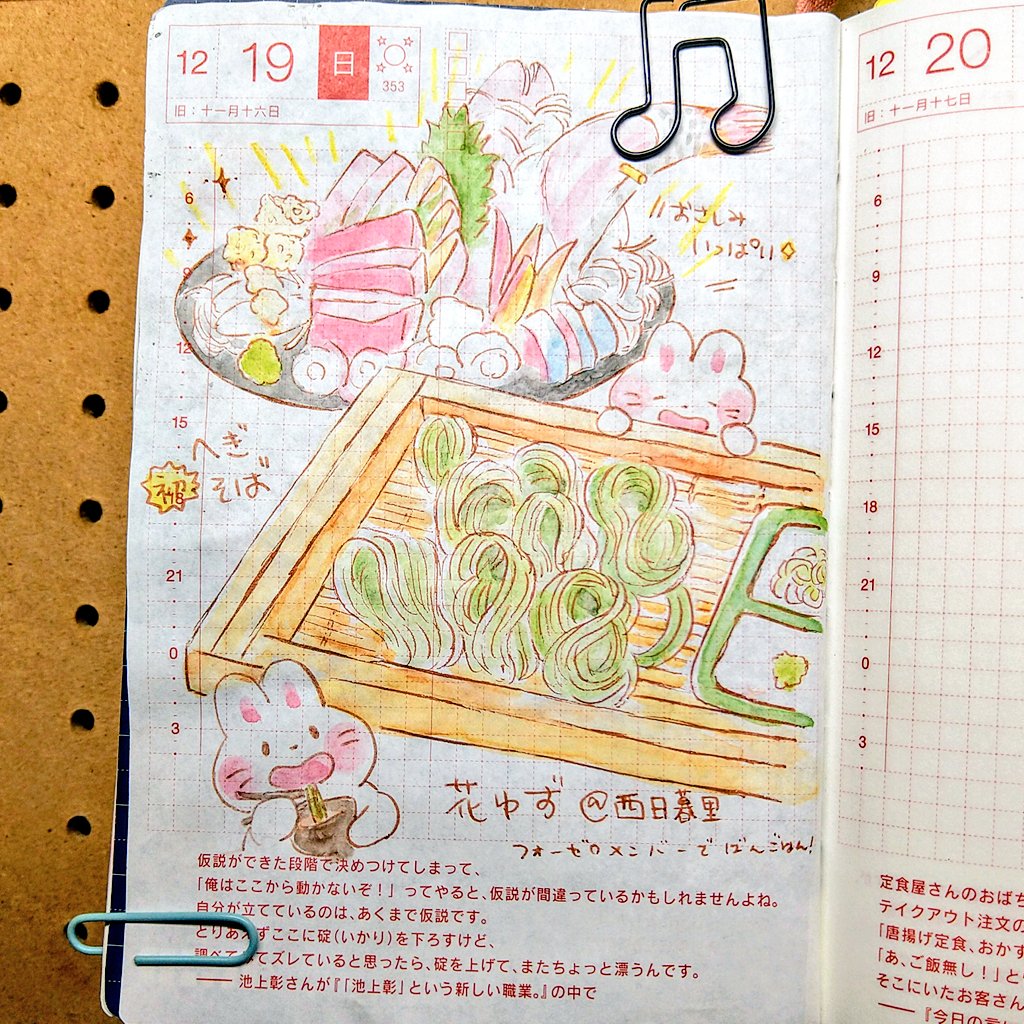 12 19 日
353
旧:十一月十六日
おさしみ
いっぱい
6
12
15
へぎ
そば
21
0
3
花ゆず @西日暮里
フォーゼロメンバーでばんごはん!
仮説ができた段階で決めつけてしまって、
「俺はここから動かないぞ!」ってやると、仮説が間違っているかもしれませんよね。
自分が立てているのは、あくまで仮説です。
とりあえずここに碇(いかり)を下ろすけど、
ズレていると思ったら、碇を上げて、またちょっと漂うんです。
── 池上彰さんが『「池上彰」という新しい職業。』の中で
12 20
旧:十一月十七日
6
9
12
15
18
21
0
3
定食屋さんのおばち
テイクアウト注文の
「唐揚げ定食、おかず
「あ、ご飯無し!」と
そこにいたお客さん
──『今日の言い